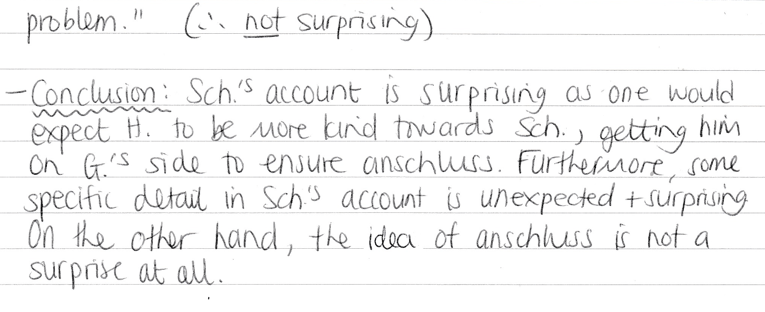 problem." (∴ not surprising)
- Conclusion: Sch.'s account is surprising as one would
expect H. to be more kind towards Sch., getting him
on G.'s side to ensure anschluss. Furthermore, some
specific detail in Sch's account is unexpected + surprising
On the other hand, the idea of anschluss is not a
surprise at all.